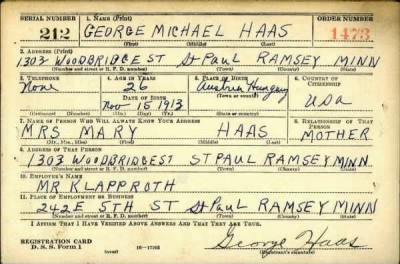 SERIAL NUMBER 1. NAME (Print) ORDER NUMBER
212 GEORGE MICHAEL HAAS 1473
(First) (Middle) (Last)
2. ADDRESS (Print)
1303 WOODBRIDGE ST St PAUL RAMSEY MINN
(Number and street or R. F. D. number) (Town) (County) (State)
3. TELEPHONE 4. AGE IN YEARS 5. PLACE OF BIRTH 6. COUNTRY OF CITIZENSHIP
None 26 Austria Hungary
DATE OF BIRTH (Town or county)
Nov 15 1913 USA
(Mo.) (Day) (Yr.) (State or country)
7. NAME OF PERSON WHO WILL ALWAYS KNOW YOUR ADDRESS 8. RELATIONSHIP OF THAT PERSON
MRS MARY HAAS MOTHER
(Mr., Mrs., Miss) (First) (Middle) (Last)
9. ADDRESS OF THAT PERSON
1303 WOODBRIDGE ST ST PAUL RAMSEY MINN
(Number and street or R. F. D. number) (Town) (County) (State)
10. EMPLOYER'S NAME
MR KLAPPROTH
11. PLACE OF EMPLOYMENT OR BUSINESS
242 E 5TH ST St PAUL RAMSEY MINN
(Number and street or R. F. D. number) (Town) (County) (State)
I AFFIRM THAT I HAVE VERIFIED ABOVE ANSWERS AND THAT THEY ARE TRUE.
REGISTRATION CARD
D. S. S. Form 1 (over) George Haas
(Registrant's signature)